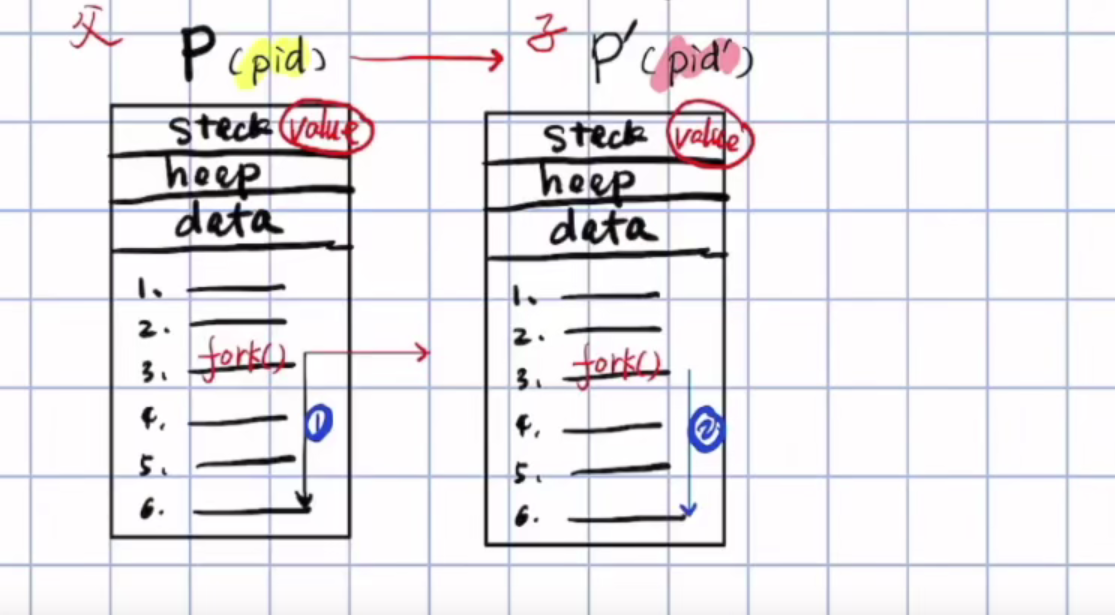 父 P (pid) 子 P' (pid')
steck value steck value'
heep heep
data data
1. 1.
2. 2.
3. fork() 3. fork()
4. ① 4. ②
5. 5.
6. 6.